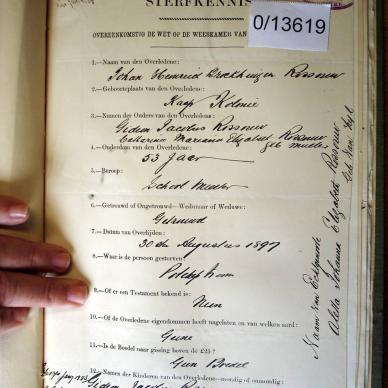 STERFKENNIS
0/13619
OVEREENKOMSTIG DE WET OP DE WEESKAMER VAN
1.—Naam van den Overledene:
Johan Hemrich Broekhuizen Rossouw
2.—Geboorteplaats van den Overledene:
Kaap Kolonie
3.—Namen der Ouders van den Overledene:
Gedeon Jacobus Rossouw
Catharina Mariana Elizabeth Rossouw
geb Muller
4.—Ouderdom van den Overledene:
53 Jaar
5.—Beroep:
School Meester
6.—Getrouwd of Ongetrouwd—Weduwnaar of Weduwe:
Getrouwd
7.—Datum van Overlijden:
30 de Augustus 1897
8.—Waar is de persoon gestorven:
Potchefstroom
9.—Of er een Testament bekend is:
Neen
10.—Of de Overledene eigendommen heeft nagelaten en van welken aard:
Geene
11.—Is de Boedel naar gissing boven de £25?:
Geen Boedel
12.—Namen der Kinderen van den Overledene—mondig of onmondig:
Gedeon Jacobus
Naam van Echtgenoote
Aletta Johanna Elizabeth Rossouw
Geb. van